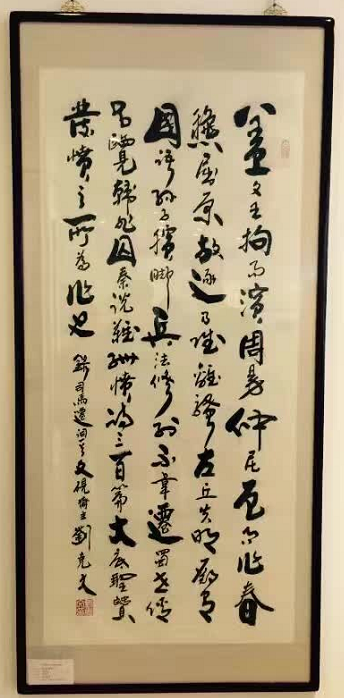 蓋文王拘而演周易仲尼厄而作春
秋屈原放逐乃賦離騷左丘失明厥有
國語孫子臏脚兵法修列不韋遷蜀世傳
呂覽韓非囚秦說難孤憤詩三百篇大底聖賢
發憤之所為作也
錄司馬遷詞文硯齋主劉克文